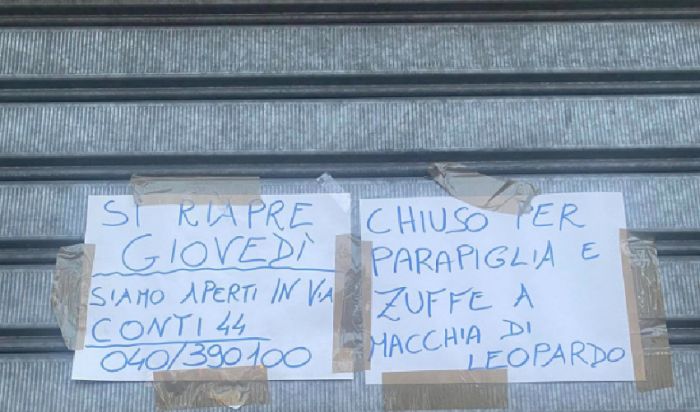 SI RIAPRE
GIOVEDÌ
SIAMO APERTI IN VIA
CONTI 44
040/390100
CHIUSO PER
PARAPIGLIA E
ZUFFE A
MACCHIA DI
LEOPARDO